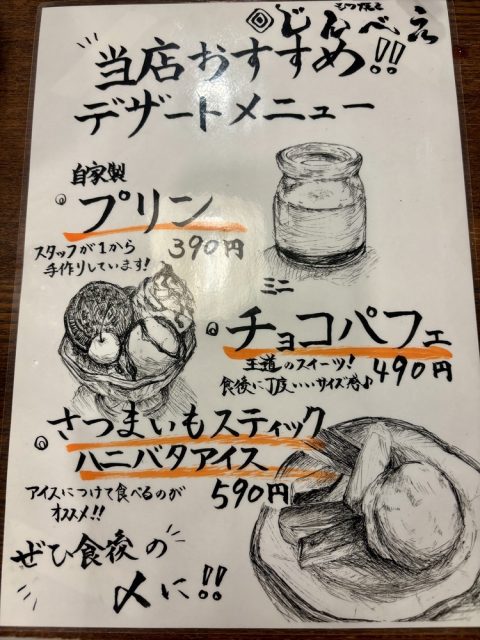 もつ焼き
じんべえ
当店おすすめ!!
デザートメニュー
自家製
プリン
スタッフが1から
手作りしています!
390円
ミニ
チョコパフェ
王道のスイーツ!
食後に丁度いいサイズ感♪
490円
さつまいもスティック
ハニバタアイス
アイスにつけて食べるのが
オススメ!!
590円
ぜひ食後の
〆に!!